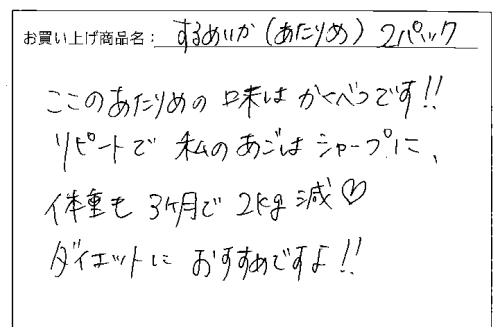 お買い上げ商品名： するめいか（あたりめ）2パック
ここのあたりめの味はかくべつです!!
リピートで私のあごはシャープに、
体重も3ヶ月で2kg減♡
ダイエットにおすすめですよ!!